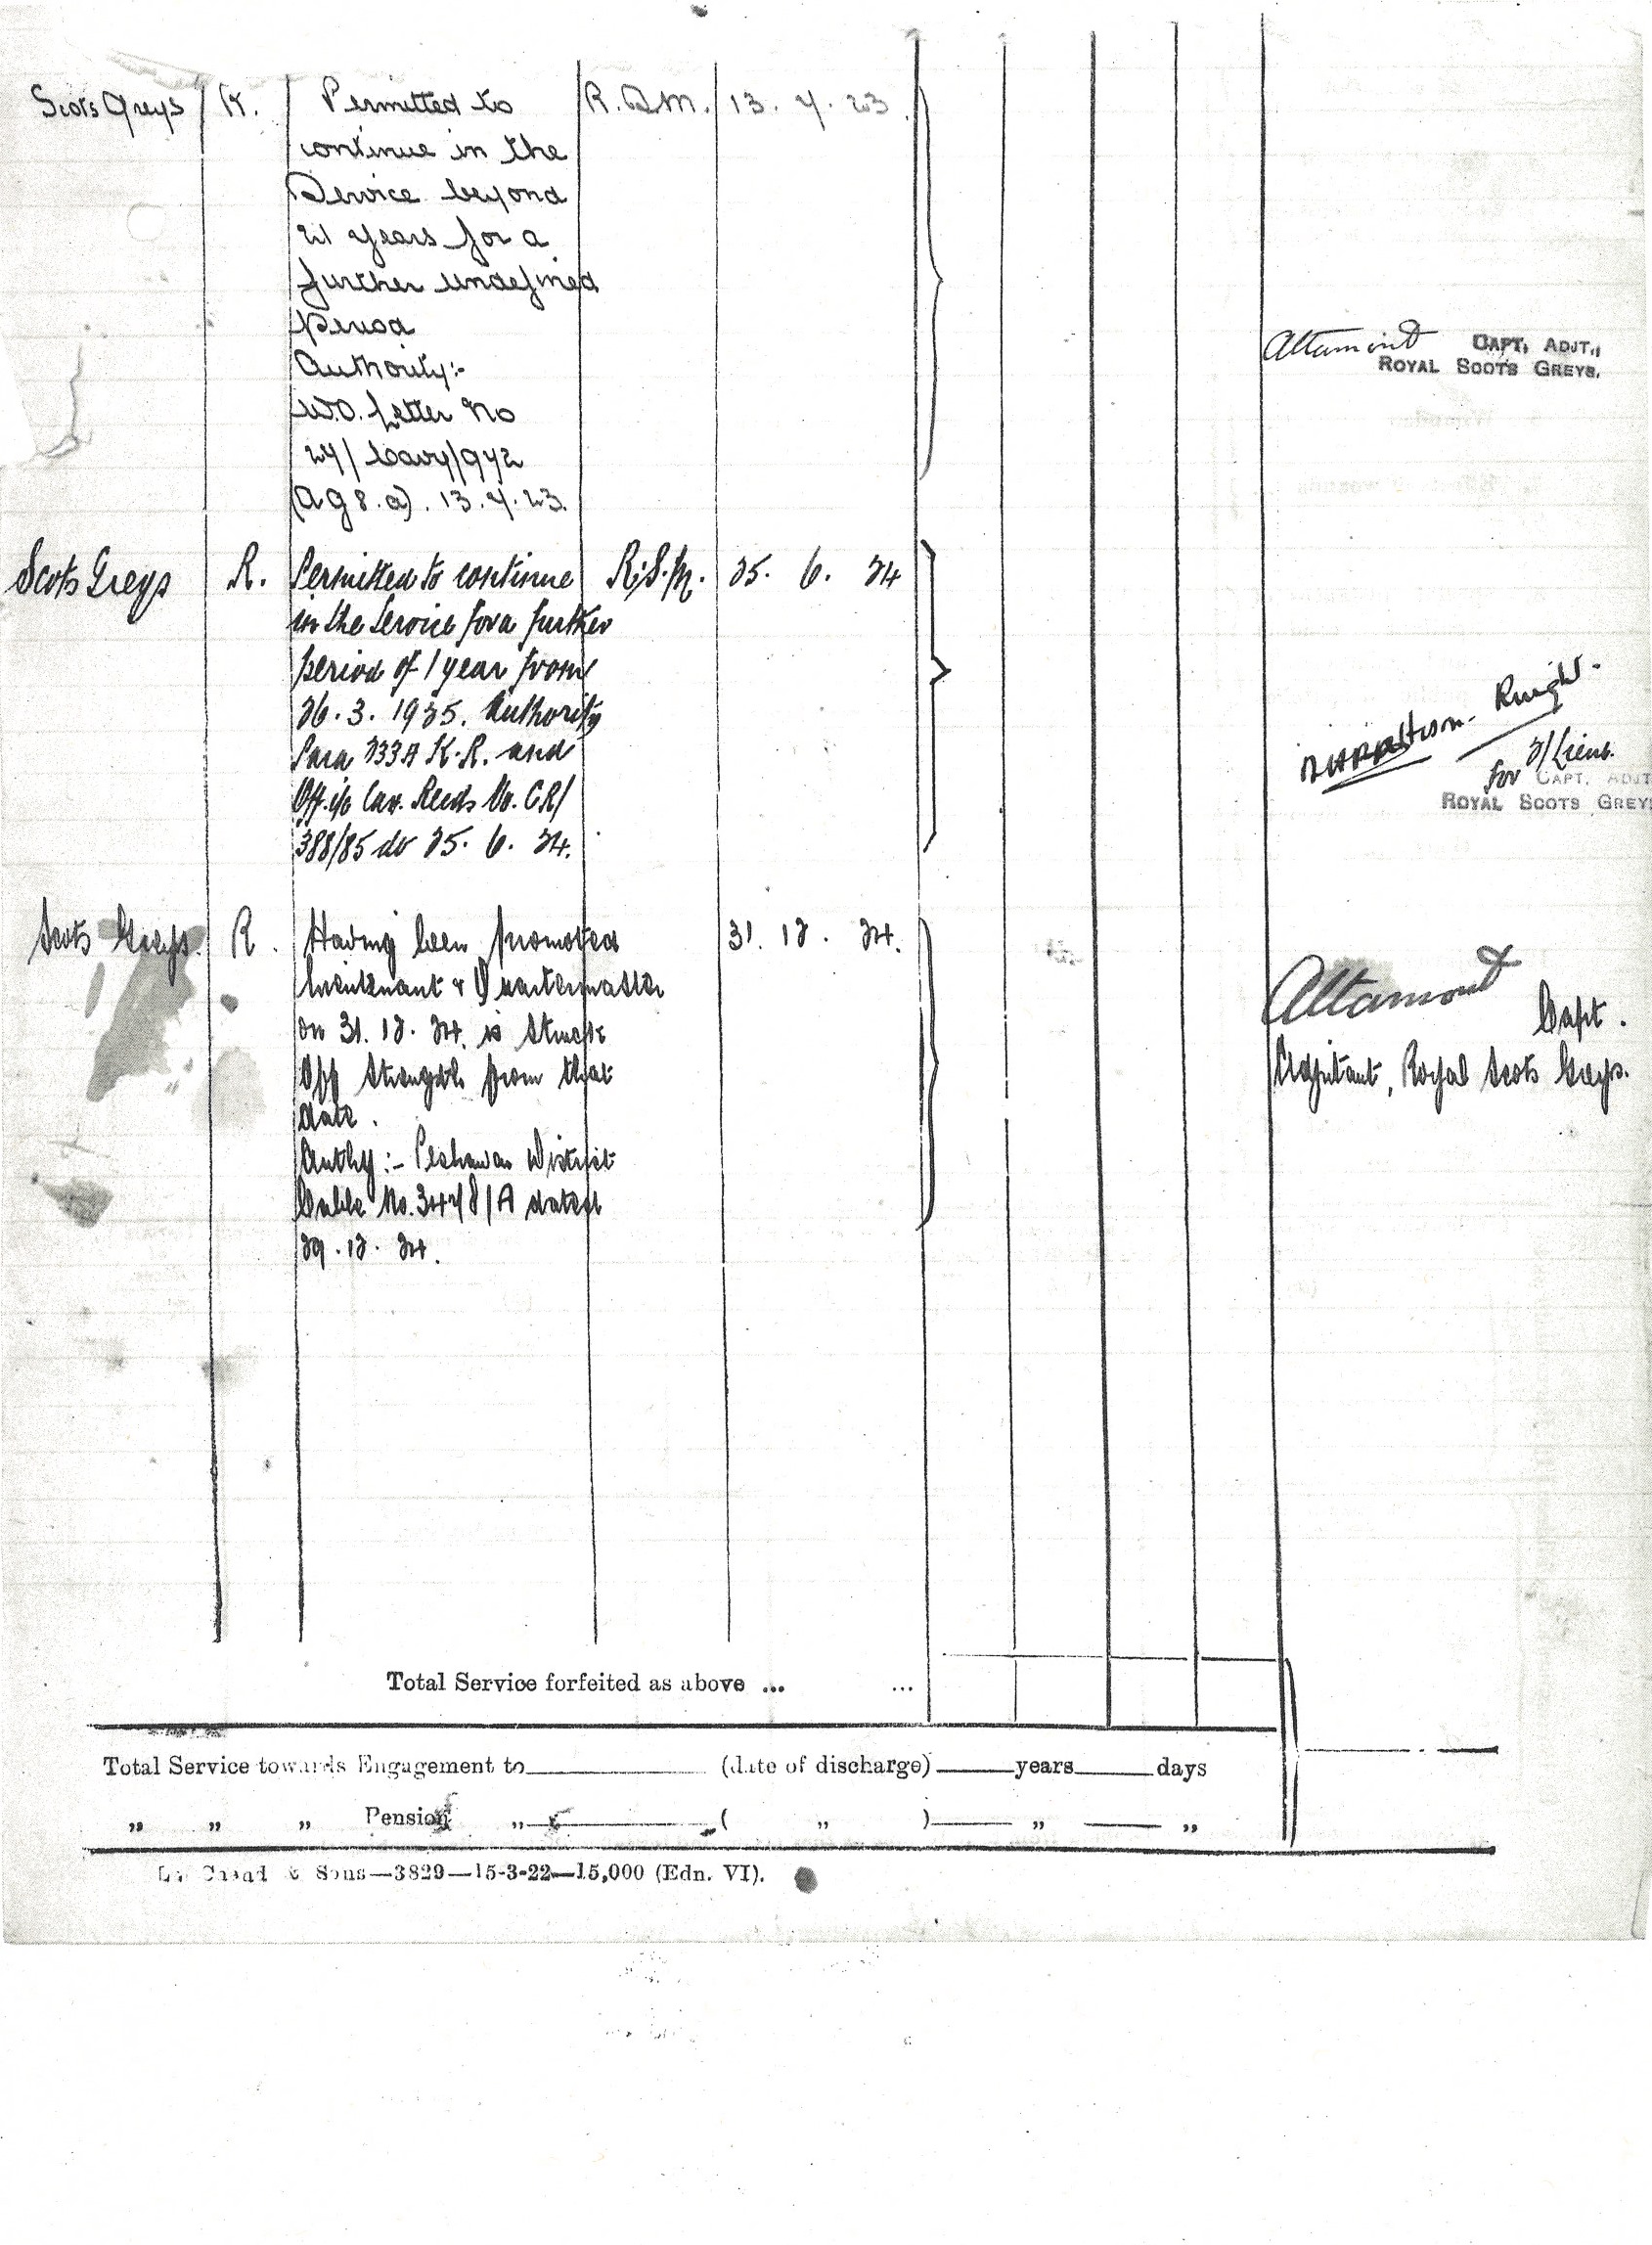 Scots Greys R. Permitted to R.S.M. 13. 7. 23.
continue in the
Service beyond
21 years for a
further undefined
period
Authority:-
W.O. Letter No
27/Cavy/972
(AG8.a). 13.7.23.
Altamont CAPT, ADJT.,
ROYAL SCOTS GREYS.
Scots Greys R. Permitted to continue R.S.M. 25. 6. 34
in the Service for a further
period of 1 year from
26.3.1935. Authority
Para 333A K.R. and
Off. i/c Cav. Recds No. CR/
388/85 d/ 25. 6. 34.
Knight.
for 2/Lieut.
CAPT. ADJT
ROYAL SCOTS GREY
Scots Greys. R. Having been promoted 31. 12. 34.
Lieutenant & Quartermaster
on 31. 12. 34. is struck
off strength from that
date.
Authy:- Peshawar District
Cable No. 3478/A dated
29. 12. 34.
Altamont
Capt.
Adjutant, Royal Scots Greys.
Total Service forfeited as above ... ...
Total Service towards Engagement to (date of discharge) years days
„ „ „ Pension „ ( „ ) „ „
Chand & Sons—3829—15-3-22—15,000 (Edn. VI).